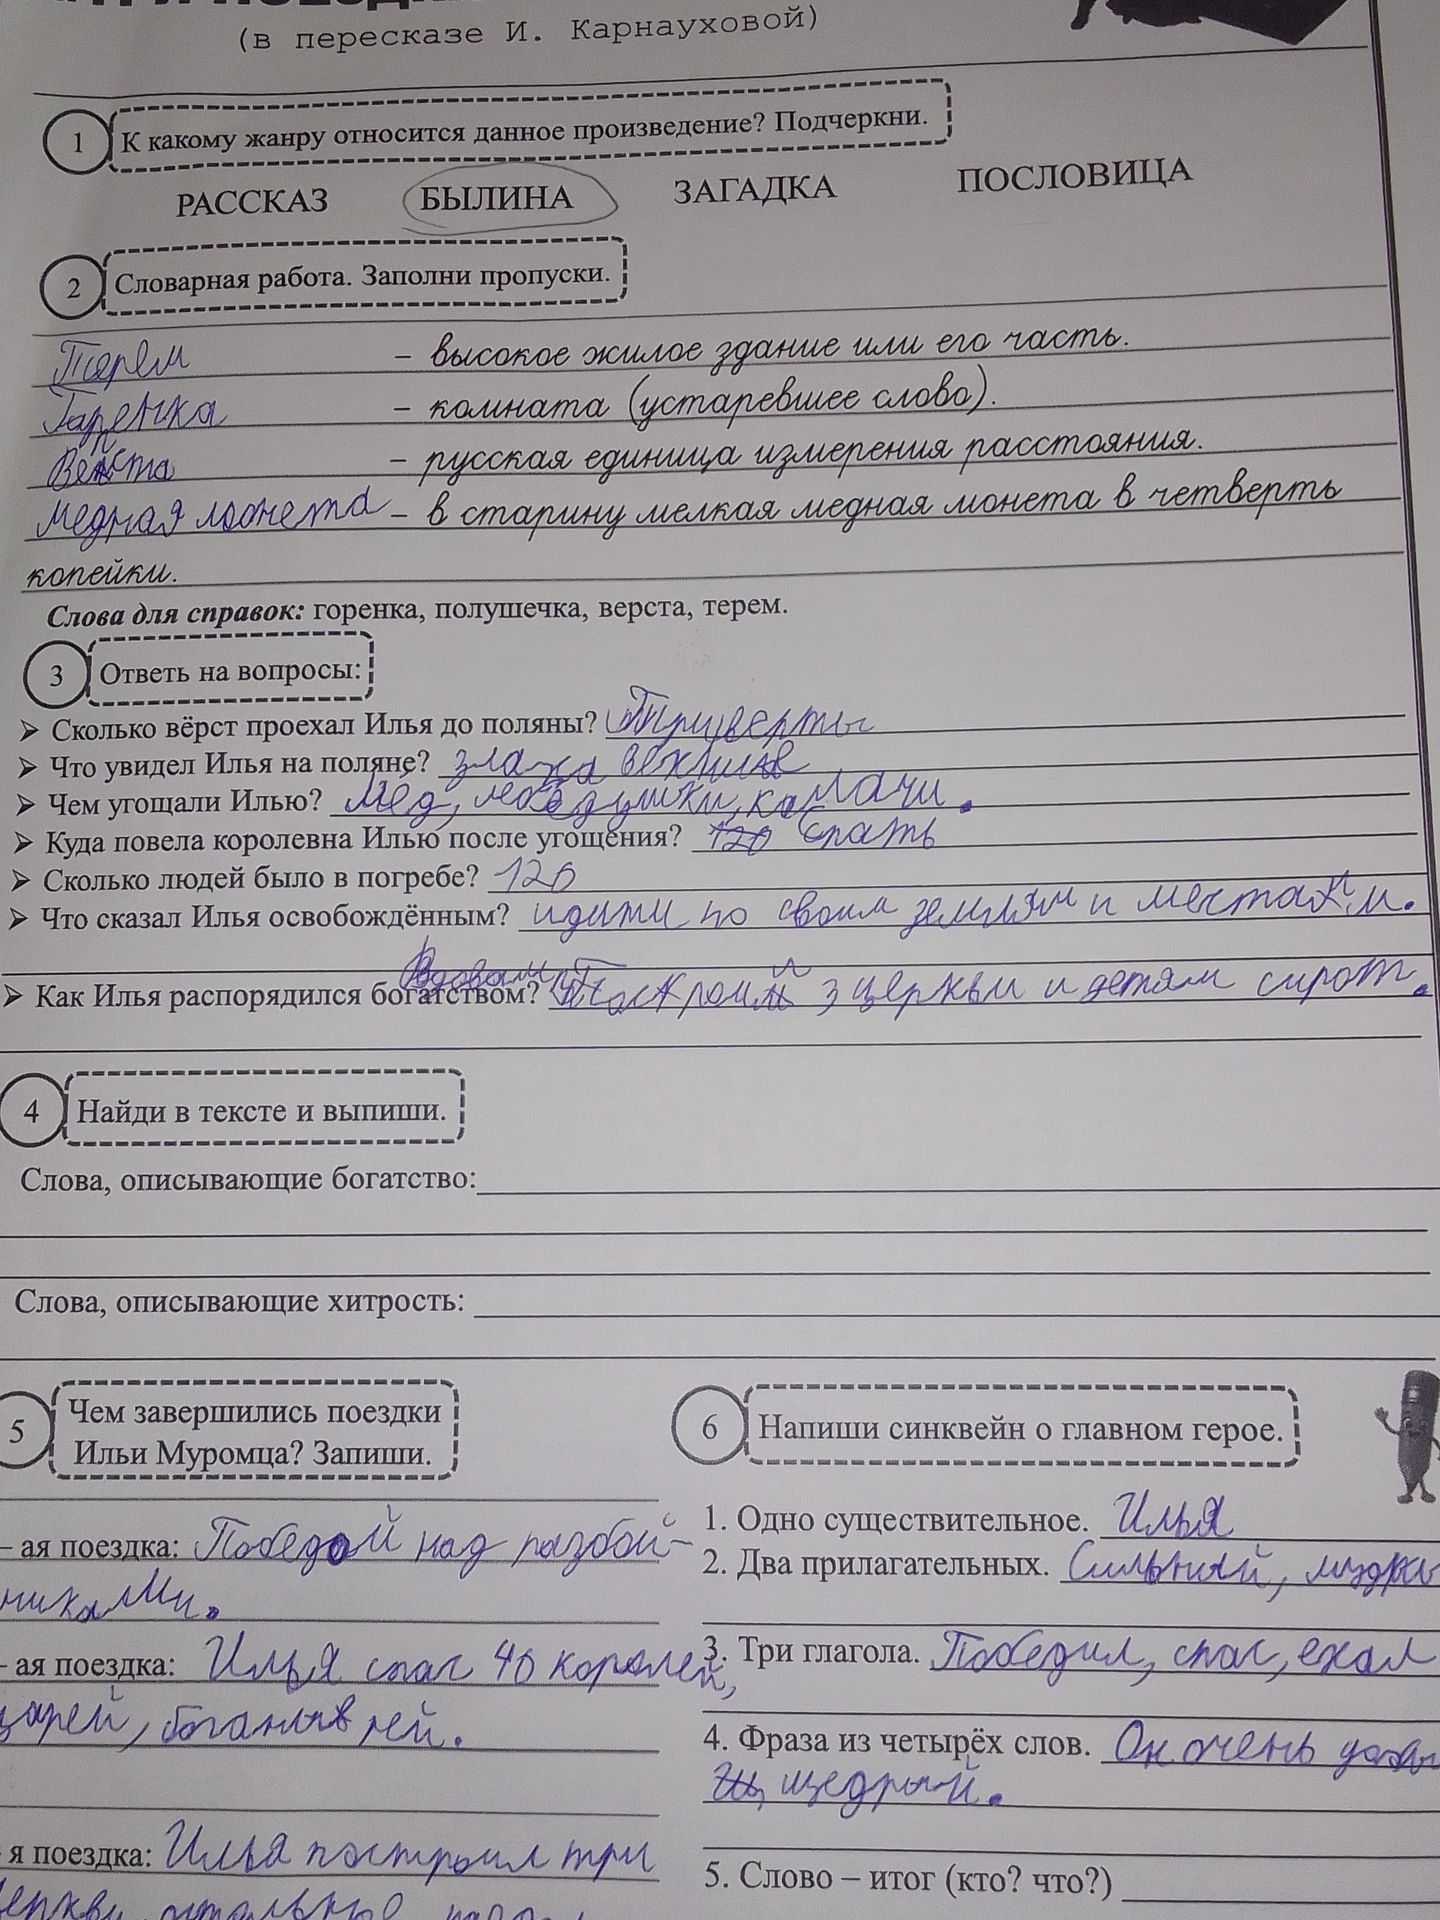 (в пересказе И. Карнауховой)
1 К какому жанру относится данное произведение? Подчеркни.
РАССКАЗ БЫЛИНА ЗАГАДКА ПОСЛОВИЦА
2 Словарная работа. Заполни пропуски.
Терем – высокое жилое здание или его часть.
Гаренка – комната (устаревшее слово).
Верста – русская единица измерения расстояния.
медная монета – в старину мелкая медная монета в четверть
копейки.
Слова для справок: горенка, полушечка, верста, терем.
3 Ответь на вопросы:
➤ Сколько вёрст проехал Илья до поляны? Три верты
➤ Что увидел Илья на поляне?
➤ Чем угощали Илью? Мёд, калачи.
➤ Куда повела королевна Илью после угощения? спать
➤ Сколько людей было в погребе? 120
➤ Что сказал Илья освобождённым? идити по своим землям и
Вдовам
➤ Как Илья распорядился богатством? 3 церкви и детям сирот.
4 Найди в тексте и выпиши.
Слова, описывающие богатство:
Слова, описывающие хитрость:
5 Чем завершились поездки
Ильи Муромца? Запиши.
– ая поездка: Победой над разбой-
никами.
– ая поездка: Илья спас 40 королей,
царей,
я поездка: Илья построил три
церкви
6 Напиши синквейн о главном герое.
1. Одно существительное. Илья
2. Два прилагательных. Сильный,
3. Три глагола. Победил, спас, ехал
4. Фраза из четырёх слов. Он очень
щедрый.
5. Слово – итог (кто? что?)